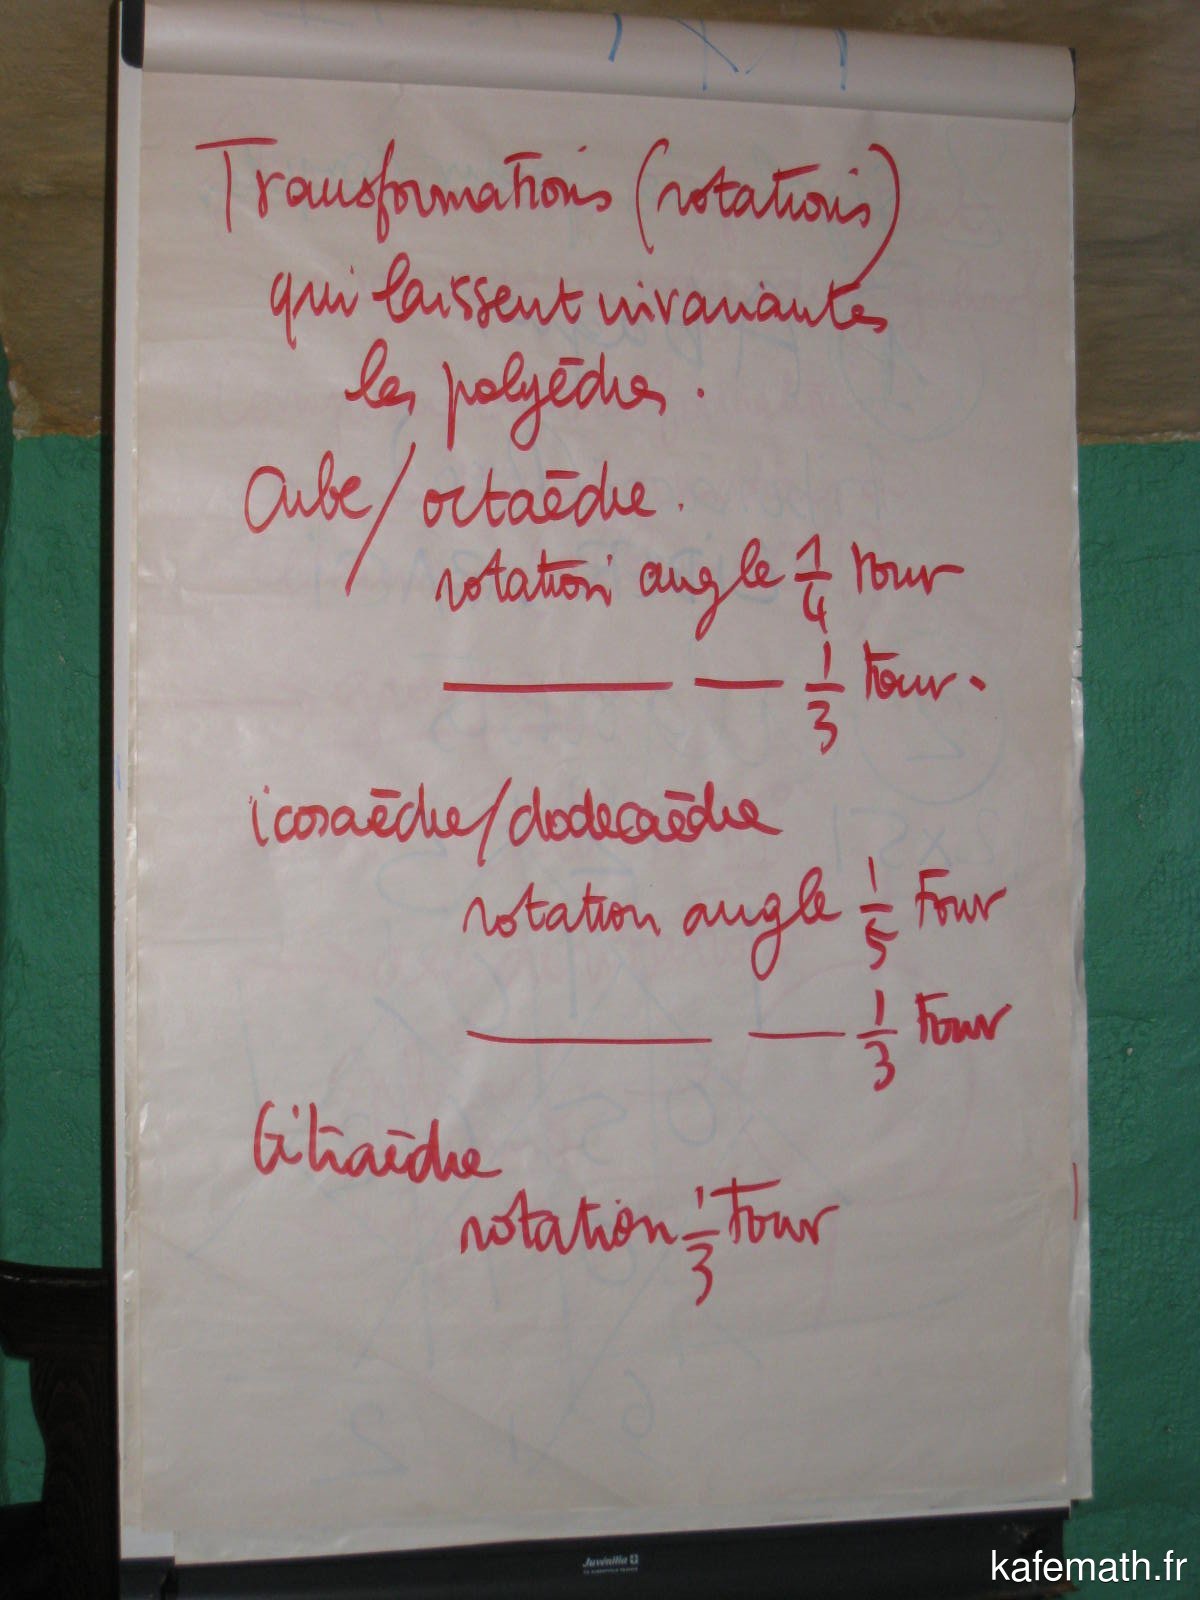 Transformations (rotations)
qui laissent invariantes
les polyèdres.
Cube / octaèdre.
rotation angle 1/4 tour
——— — 1/3 tour.
icosaèdre/dodecaèdre
rotation angle 1/5 tour
——— — 1/3 tour
tétraèdre
rotation 1/3 tour
Juvénilia
kafemath.fr